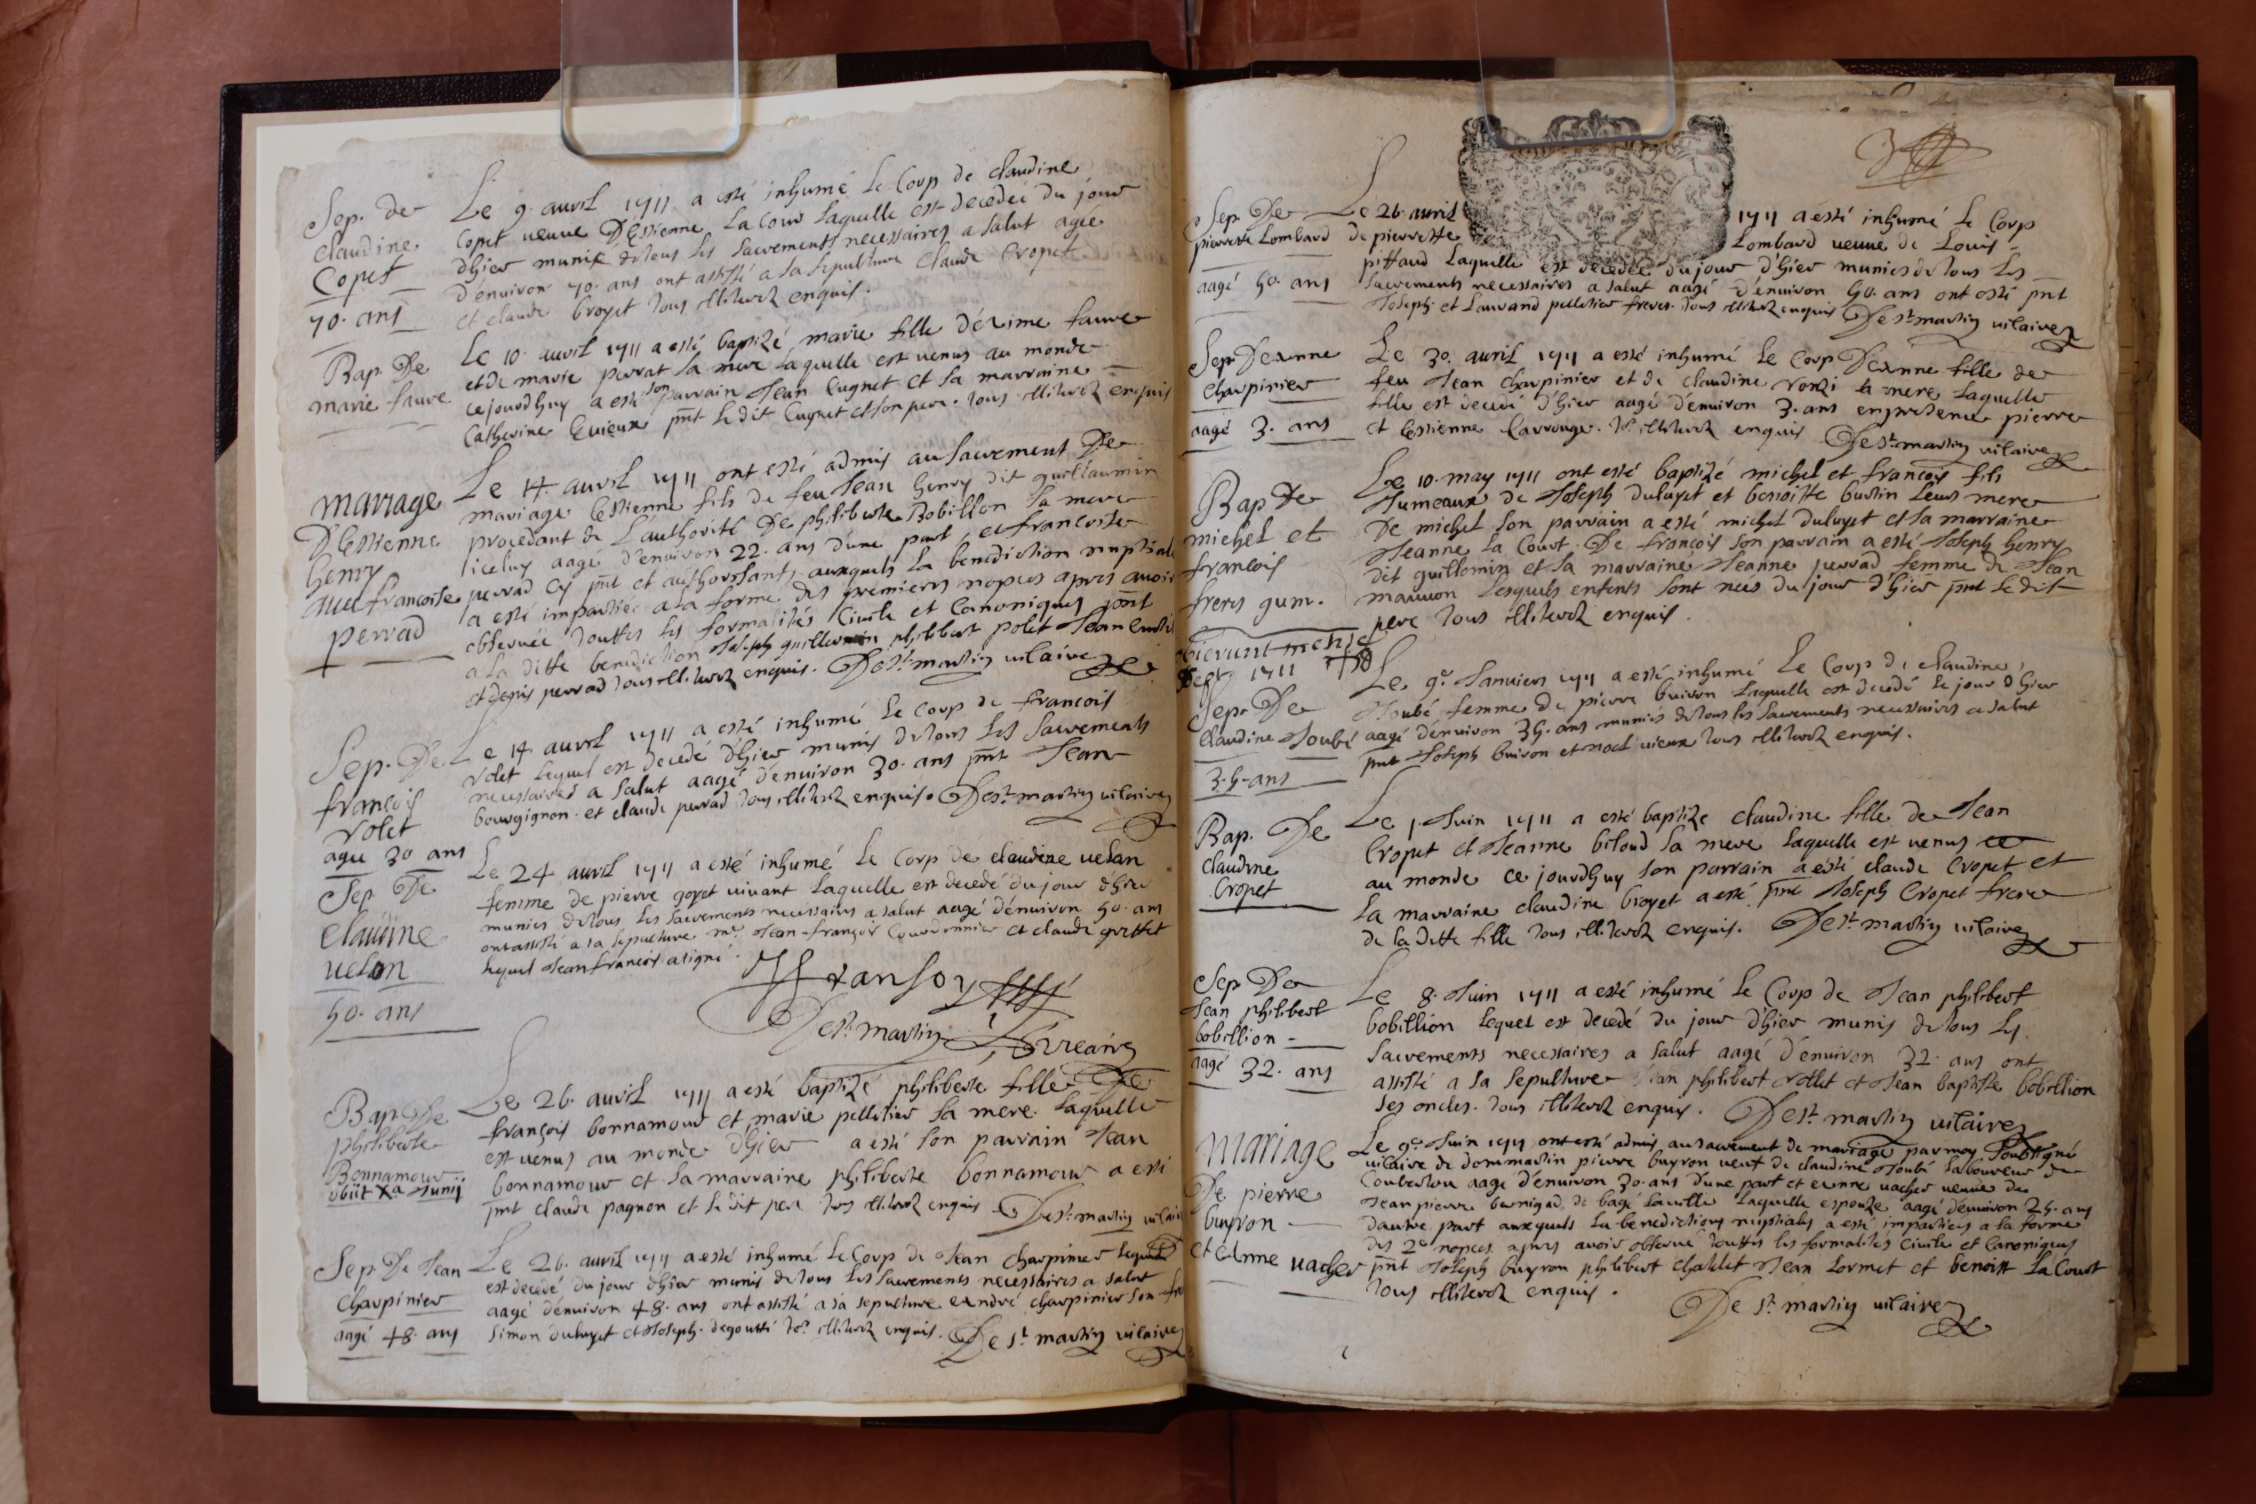 Sep. de
Claudine
Copet
70. ans
Le 9. auvril 1711 a esté inhumé Le Corp de Claudine
Copet veuve D'Estienne La Cour Laquelle est decedeé Du jour
d'hier munie de tous les sacrements necessaires a salut ageé
d'enuiron 70. ans ont assisté a sa sepulture Claude Cropet
et claude broyet tous illiterez enquis.
Bap. De
marie faure
Le 10. auvril 1711 a esté baptizé marie fille d'
et de marie perrat sa mere Laquelle est venus au monde
cejourdhuy a esté son parrain Jean Cugnet et sa marraine
Catherine Euieux pnt Le dit Cugnet et son pere. tous illiterez enquis
mariage
D'Estienne
henry
auec francoise
perrad
Le 14. auvril 1711 ont esté admis au sacrement De
mariage Estienne fils de feu Jean henry dit guillaumin
procedant de L'authorité De philiberte Bobillon sa mere
iceluy aagé d'enuiron 22. ans d'une part, et francoise
perrad cy pnt et authorisants auxquels La benediction nuptiale
a esté impartieé a la forme des premieres nopces apres auoir
obserueé touttes les formalités Civile et Canoniques pnt
a La ditte benediction Joseph guillermin philibert polet Jean
et Denis perrad tous illiterez enquis. De st martin vicaire
Sep. De
francois
rolet
agee 30 ans
Le 14. auvril 1711 a esté inhumé Le corp de francois
rolet Lequel est decedé d'hier munis de tous Les sacrements
necessaires a salut aagé d'enuiron 30. ans pnt Jean
bourgignon. et claude perrad tous illiterez enquis. De st martin vicaire
Sep De
Claudine
uelon
50. ans
Le 24 auvril 1711 a esté inhumé Le Corp de claudine uelan
femme de pierre goyet viuant Laquelle est decedé du jour d'hier
munies de tous Les sacrements necessaires a salut aagé d'enuiron 50. ans
ont assisté a sa sepulture mr. Jean-françois Courdonnier et claude grettet
Lequel Jean francois a signé.
De st. martin vicaire
Bap. De
philiberte
Bonnamour
obiit xa Junij
Le 26. auvril 1711 a esté baptizé philiberte fille De
françois bonnamour et marie pelletier sa mere Laquelle
est venus au monde d'hier a esté son parrain Jean
bonnamour et sa marraine philiberte bonnamour a esté
pnt claude pagnon et Le dit pere tous illiterez enquis De st. martin vicaire
Sep. De Jean
Charpinier
aagé 48. ans
Le 26. auvril 1711 a esté inhumé Le Corp de Jean Charpinier Lequel
est decedé du jour d'hier munis de tous Les sacrements necessaires a salut
aagé d'enuiron 48. ans ont assisté a sa sepulture andré charpinier son
simon duluyet et Joseph. degoutté ts illiterez enquis. De st martin vicaire
Sep. De
pierrette Lombard
aagé 50. ans
Le 26. auvril 1711 a esté inhumé Le Corp
de pierrette Lombard veuue de Louis
pittaud Laquelle est decedeé du jour d'hier munies de tous Les
sacrements necessaires a salut aagé d'enuiron 50. ans ont esté pnt
Joseph et Laurand pelletier freres. tous illiterez enquis De st. martin vicaire
Sep. De anne
Charpinier
aagé 3. ans
Le 30. auvril 1711 a esté inhumé Le Corp D'anne fille de
feu Jean Charpinier et de claudine ronzi sa mere Laquelle
fille est decedé d'hier aagé d'enuiron 3. ans en presence pierre
et Estienne Carrouge. ts illiterez enquis De st. martin vicaire
Bap De
michel et
francois
freres gum.
obierunt mense
sept 1711
Le 10. may 1711 ont esté baptizé michel et francois fils
Jumeaux de Joseph duluyet et benoitte burtin Leurs mere
De michel son parrain a esté michel duluyet et sa marraine
Jeanne La Court. De françois son parrain a esté Joseph henry
dit guillomin et sa marraine Jeanne perrad femme de Jean
mauuon Lesquels enfents sont neés du jour d'hier pnt Le dit
pere tous illiterez enquis.
Sep. De
Claudine Joubé
35. ans
Le 9e Januiers 1711 a esté inhumé Le Corp de claudine
Joubé femme de pierre buiron Laquelle est decedé Le jour d'hier
aagé d'enuiron 35. ans munies de tous les sacrements necessaires a salut
pnt Joseph buiron et noel uieux tous illiterez enquis.
Bap. De
Claudine
Cropet
Le 1. Juin 1711 a esté baptizé claudine fille de Jean
Cropet et Jeanne biloud sa mere Laquelle est venus
au monde ce jourdhuy son parrain a esté claude Cropet et
La marraine claudine broyet a esté pnt Joseph Cropet frere
de la ditte fille tous illiterez enquis. De st. martin vicaire
Sep. De
Jean philibert
bobillion
aagé 32. ans
Le 8. Juin 1711 a esté inhumé Le Corp de Jean philibert
bobillion Lequel est decedé du jour d'hier munis de tous Les
sacrements necessaires a salut aagé d'enuiron 32. ans ont
assisté a sa sepulture Jean philibert rollet et Jean baptiste bobillion
ses oncles. tous illiterez enquis. De st. martin vicaire
mariage
De pierre
buyron
et anne uacher
Le 9e. Juin 1711 ont esté admis au sacrement de mariage par moy soubsigné
vicaire de dommartin pierre buyron veuf de claudine Joubé Laboureur de
Coubertou aagé d'enuiron 30. ans d'une part et anne uacher veuue de
Jean pierre bernigad de bagé La uille Laquelle espouze aagé d'enuiron 25. ans
d'autre part auxquels La benediction nuptiales a esté imparties a la forme
des 2e nopces apres auoir obserué touttes les formalités Civile et Canoniques
pnt Joseph buyron philibert Challet Jean Lormet et benoist La Court
tous illiterez enquis.
De st. martin vicaire